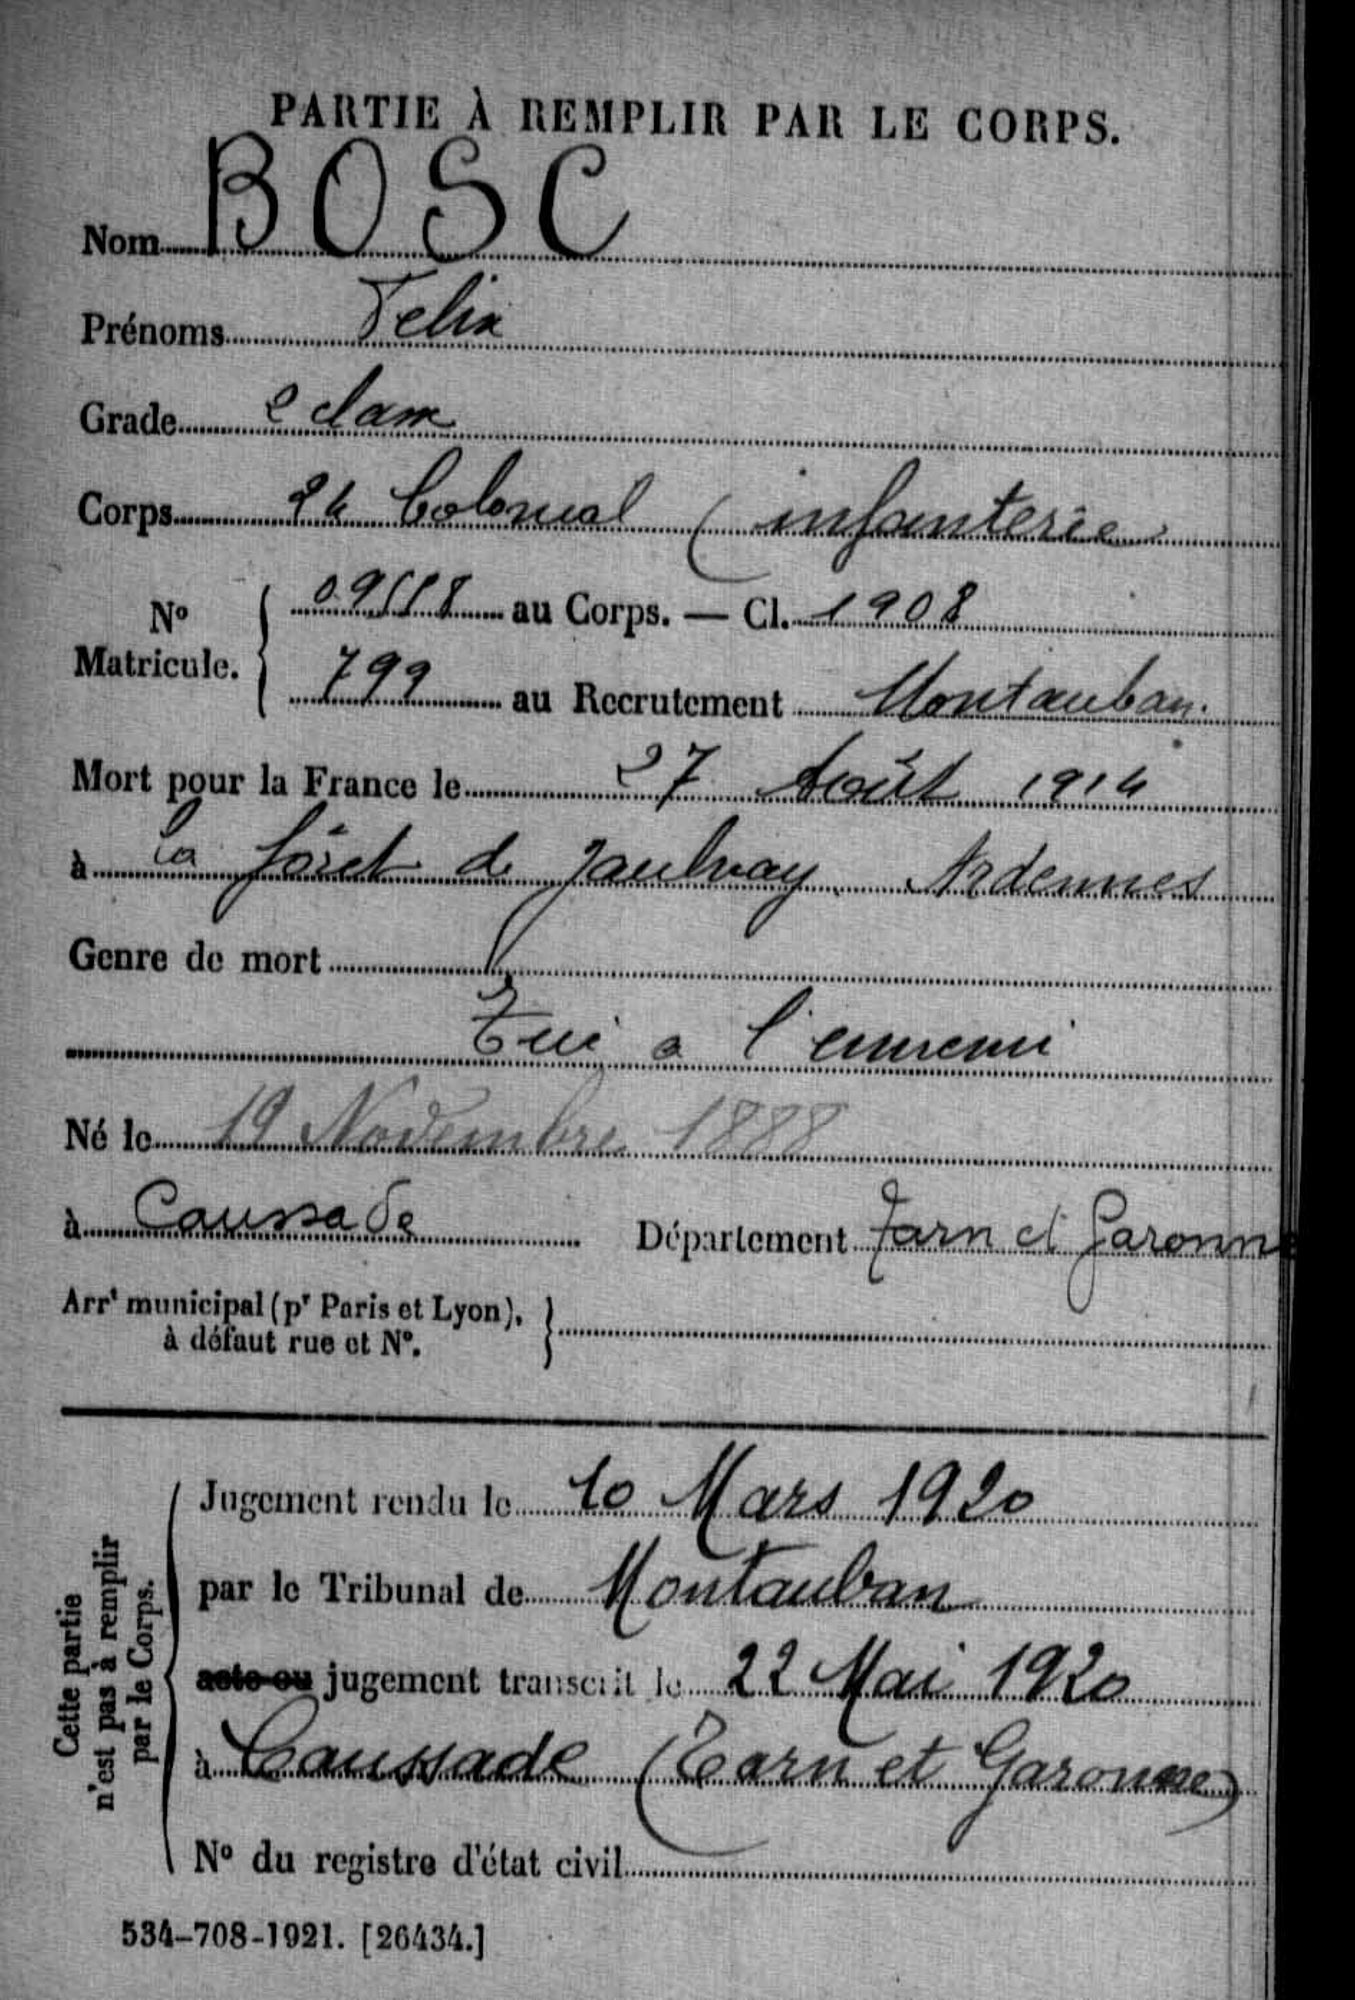 PARTIE À REMPLIR PAR LE CORPS.
Nom BOSC
Prénoms Felix
Grade 2 classe
Corps 24 Colonial (infanterie
No Matricule. { au Corps. — Cl. 1908
799 au Recrutement Montauban.
Mort pour la France le 27 Août 1914
à la forêt de Jaulnay Ardennes
Genre de mort
Tué a l'ennemi
Né le 19 Novembre 1888
à Caussade Département Tarn et Garonne
Arrt municipal (pr Paris et Lyon), }
à défaut rue et No.
Cette partie
n'est pas à remplir
par le Corps.
Jugement rendu le 10 Mars 1920
par le Tribunal de Montauban
acte ou jugement transcrit le 22 Mai 1920
à Caussade (Tarn et Garonne)
No du registre d'état civil
534-708-1921. [26434.]